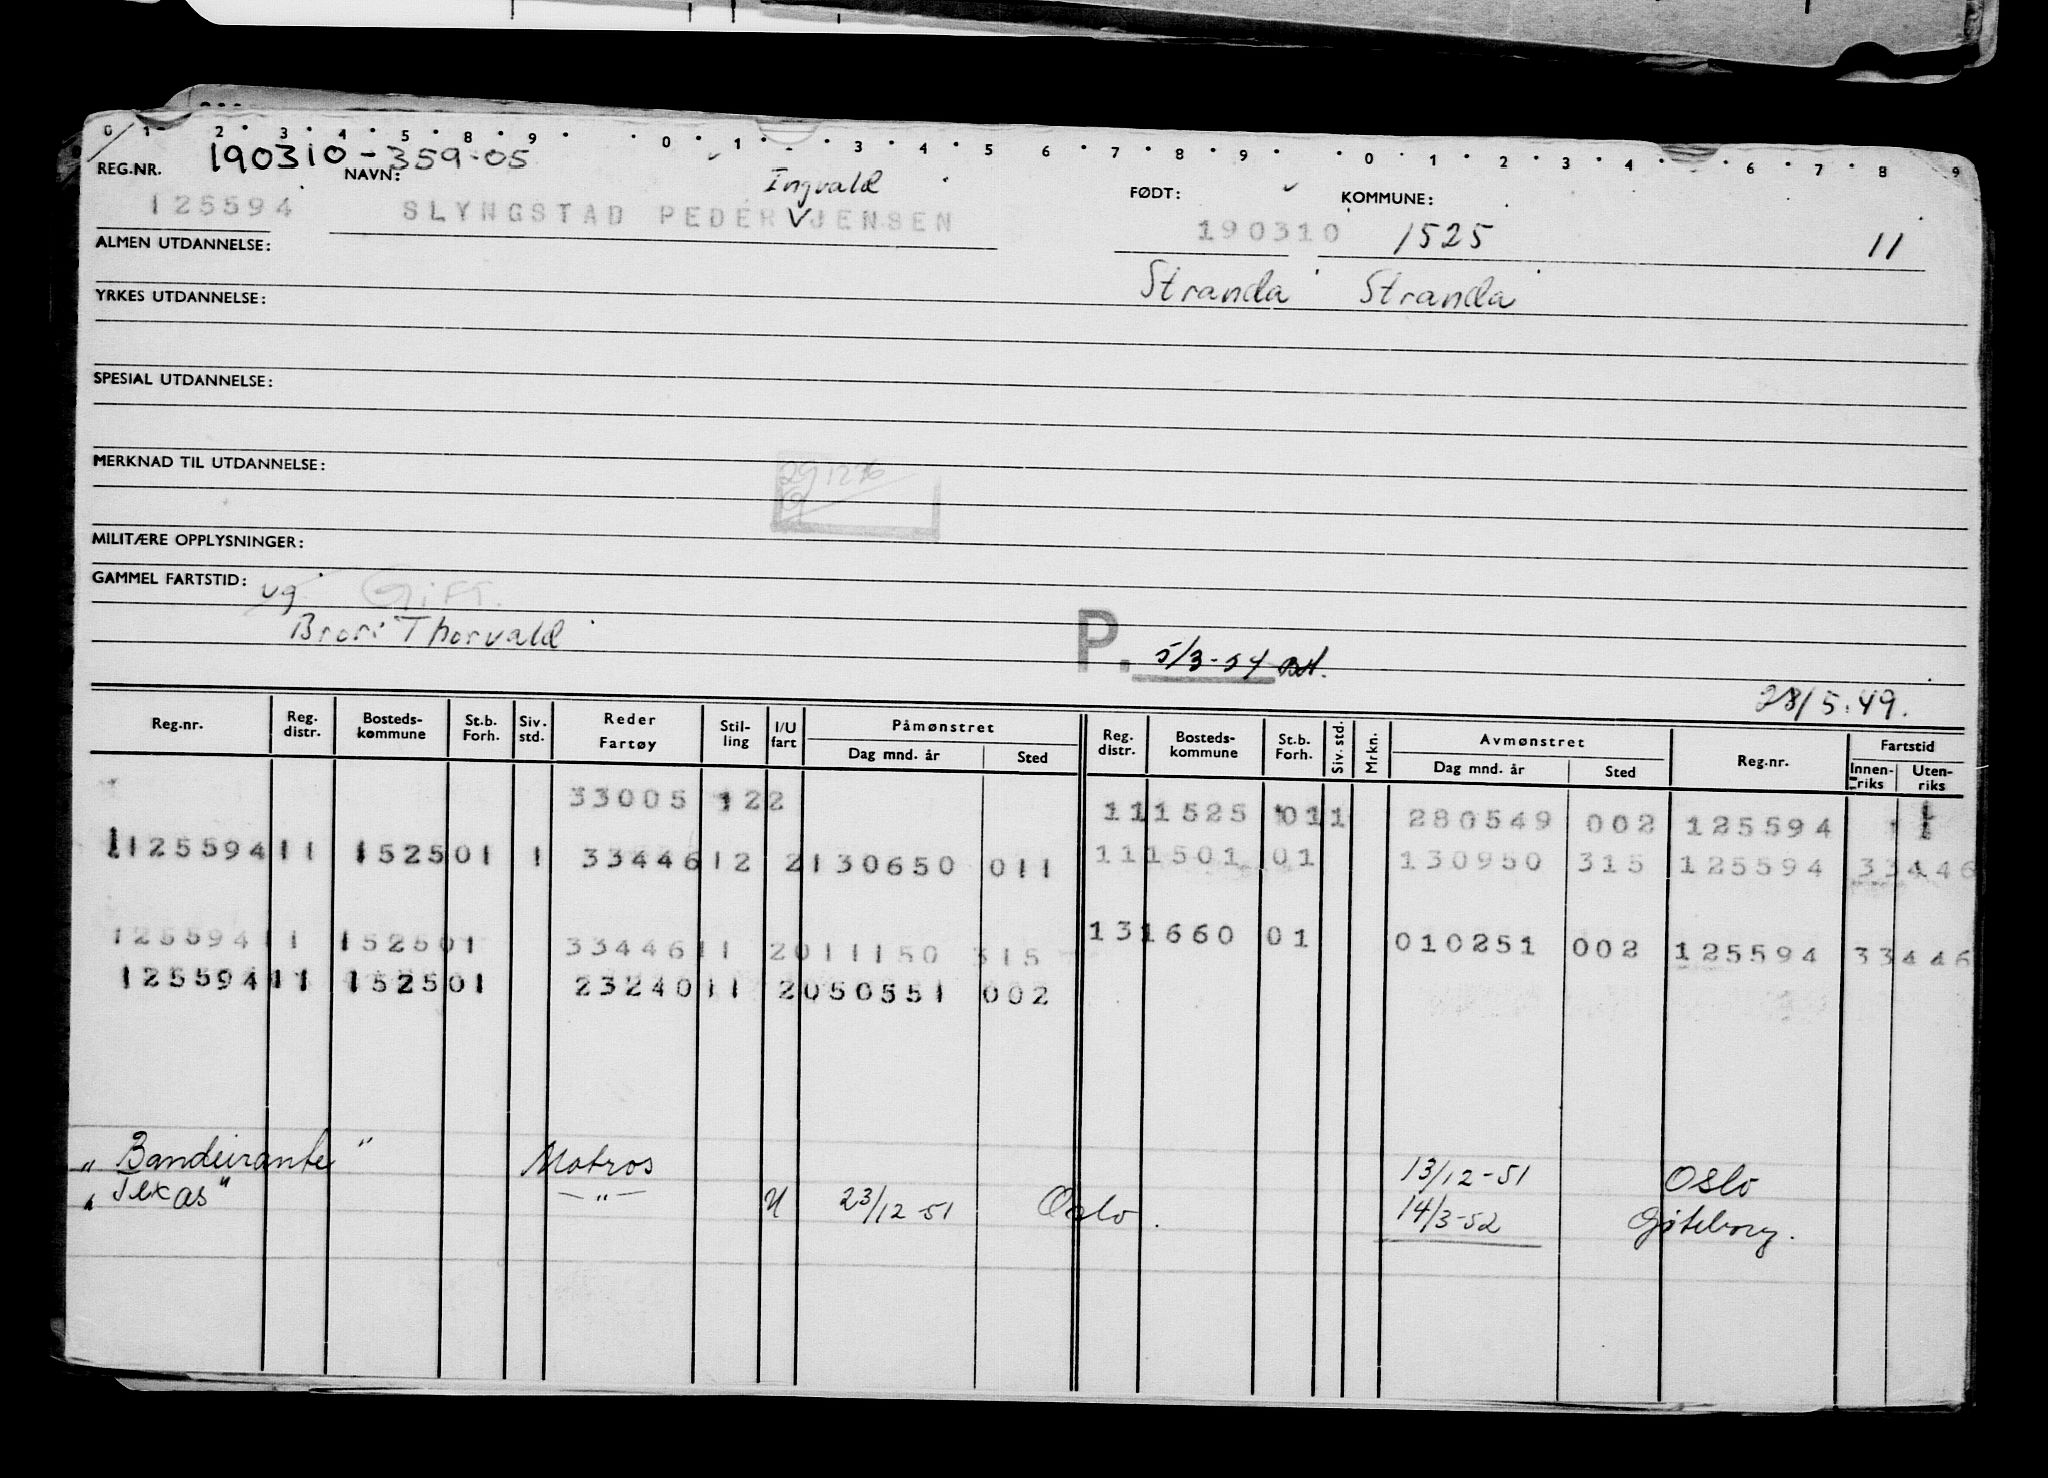 0 1 2 3 4 5 8 9 0 1 3 4 5 6 7 8 9 0 1 2 3 4 6 7 8 9
190310-359-05
REG.NR. NAVN: Ingvald FØDT: KOMMUNE:
125594 SLYNGSTAD PEDER V JENSEN 190310 1525 11
ALMEN UTDANNELSE:
Stranda Stranda
YRKES UTDANNELSE:
SPESIAL UTDANNELSE:
MERKNAD TIL UTDANNELSE:
291276
MILITÆRE OPPLYSNINGER:
GAMMEL FARTSTID:
ug Gift.
Bror: Thorvald
P. 5/3-54
28/5.49.
Reg.nr. Reg. distr. Bosteds-kommune St.b. Forh. Siv. std. Reder Fartøy Stil-ling I/U fart Påmønstret Dag mnd. år Sted Reg. distr. Bosteds-kommune St.b. Forh. Siv. std. Mrkn. Avmønstret Dag mnd. år Sted Reg.nr. Fartstid Innen-riks Uten-riks
33005 122 111525 011 280549 002 125594 1
125594 11 1525 01 1 33446 12 2 130650 011 111501 01 130950 315 125594 33446
125594 11 1525 01 33446 11 2 011150 315 131660 01 010251 002 125594 33446
125594 11 1525 01 23240 11 2 050551 002
"Bandeirante" Matros 13/12-51 Oslo
"Texas" —"— U 23/12-51 Oslo. 14/3-52 Gøteborg.